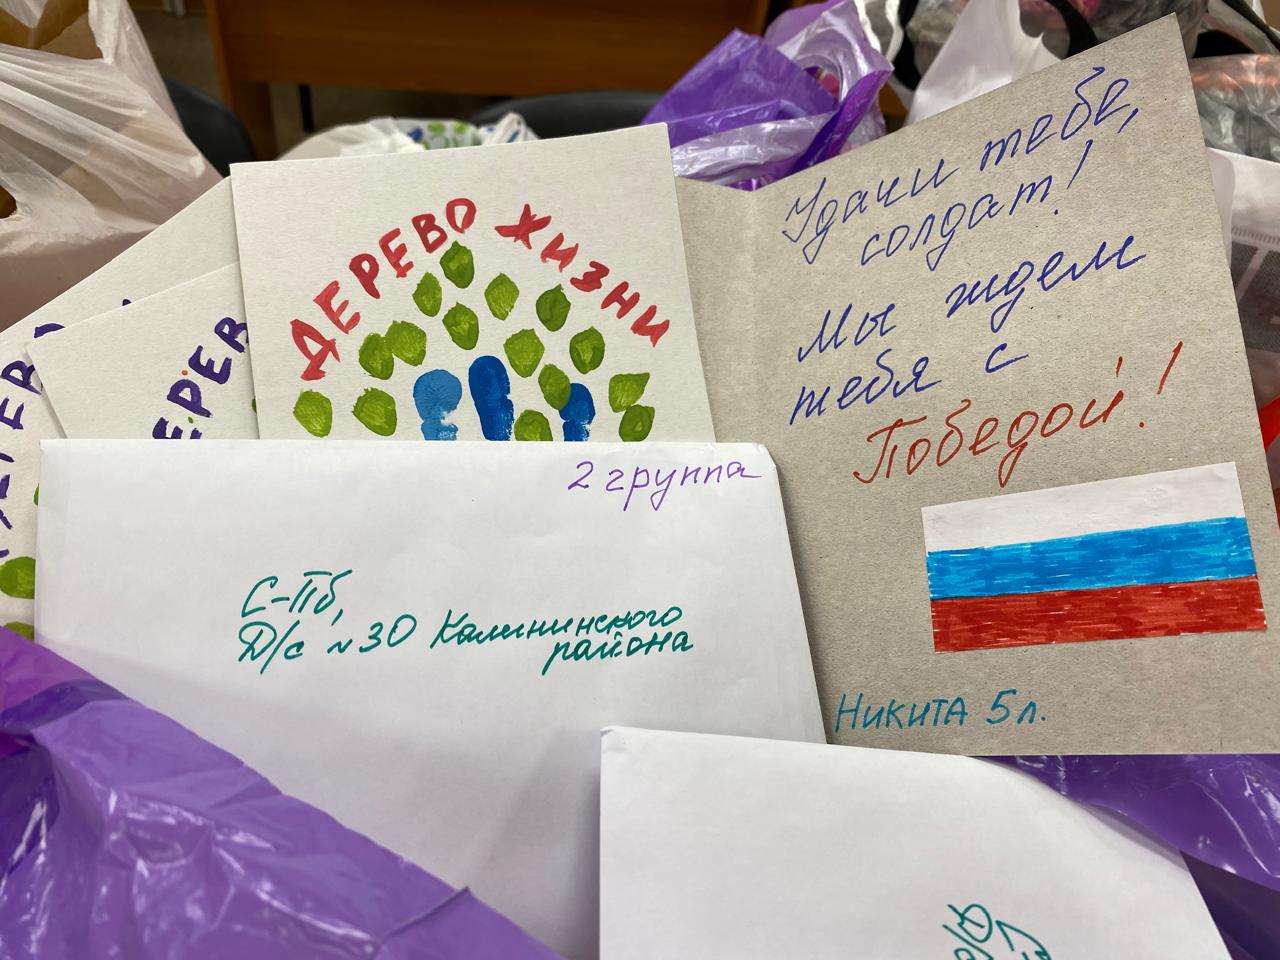 ДЕРЕВО ЖИЗНИ
ЕРЕВ
Удачи тебе,
солдат!
Мы ждем
тебя с
Победой!
Никита 5 л.
2 группа
С-Пб,
Д/с №30 Калининского
района